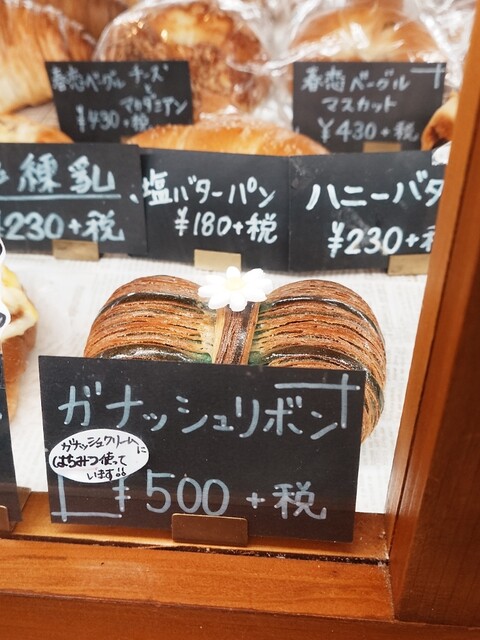 春恋ベーグル チーズ
と
マカダミアン
¥430+税
春恋ベーグル
マスカット
¥430+税
練乳
¥230+税
塩バターパン
¥180+税
ハニーバタ
¥230+税
ガナッシュリボン
ガナッシュクリームに
はちみつ使って
います!!
¥500+税